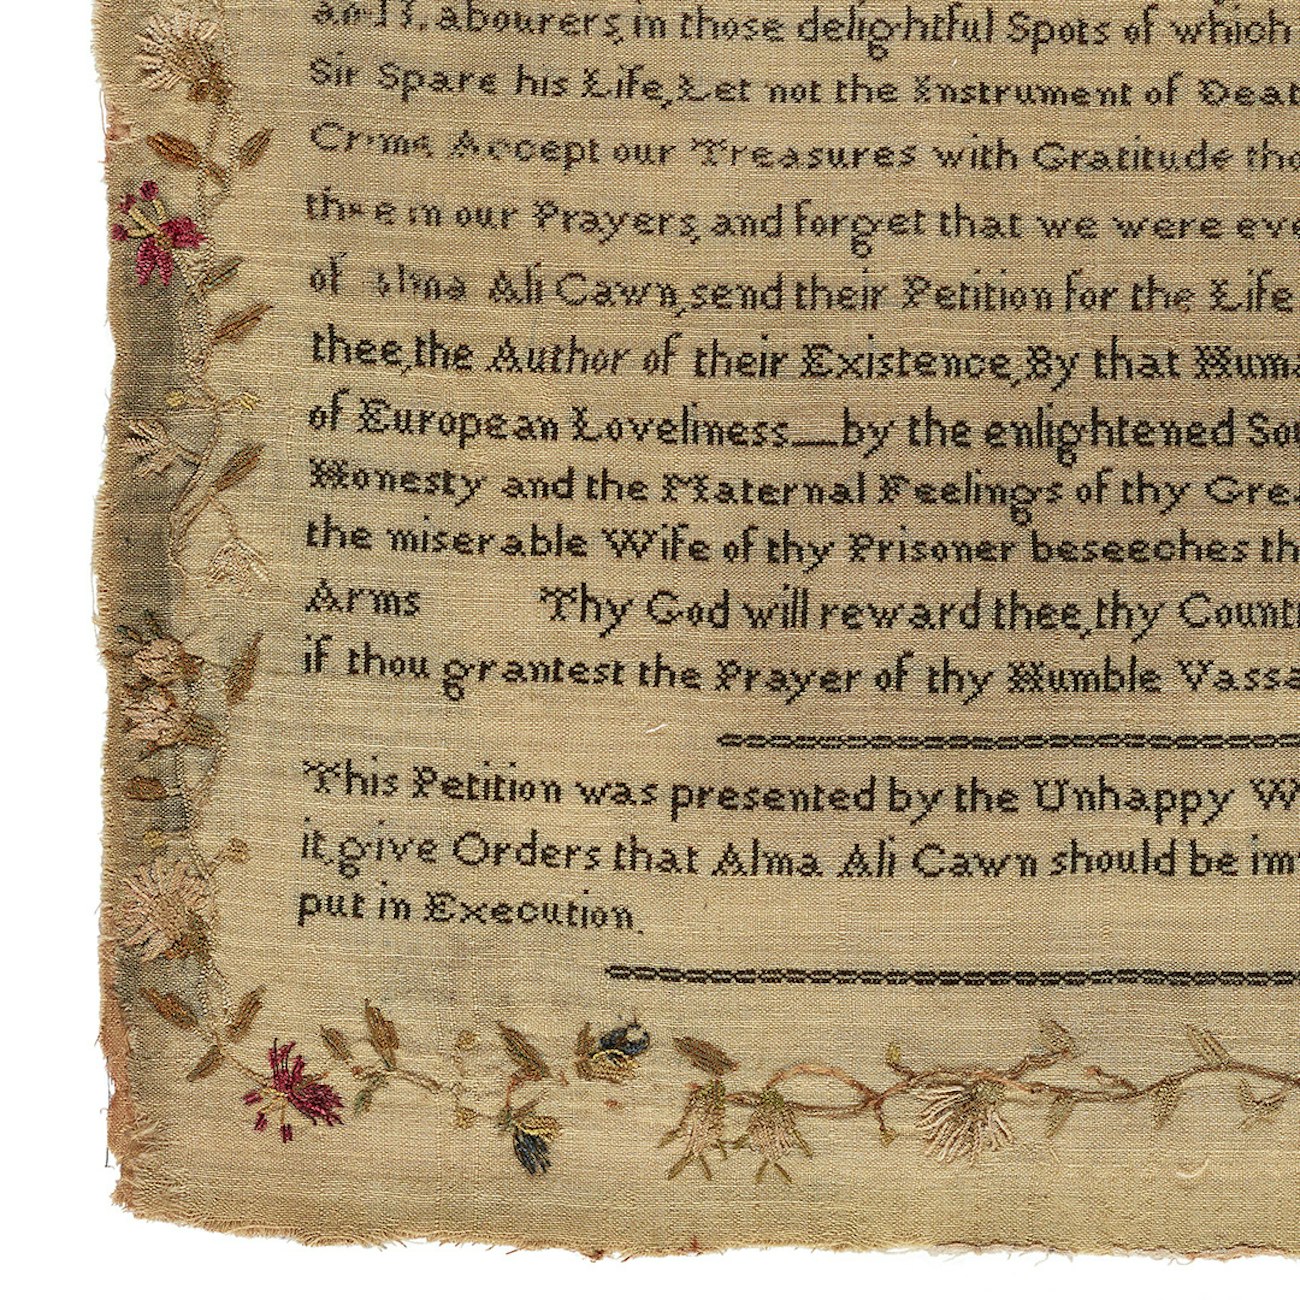 Labourers, in those delightful Spots of which
Sir Spare his Life, Let not the Instrument of Deat
Crime Accept our Treasures with Gratitude tho
thee in our Prayers, and forget that we were eve
of Alma Ali Cawn, send their Petition for the Life
thee, the Author of their Existence, By that Huma
of European Loveliness—by the enlightened Sou
Honesty and the Maternal Feelings of thy Gre
the miserable Wife of thy Prisoner beseeches th
Arms Thy God will reward thee, thy Count
if thou grantest the Prayer of thy Humble Vassa
This Petition was presented by the Unhappy W
it, give Orders that Alma Ali Cawn should be im
put in Execution.